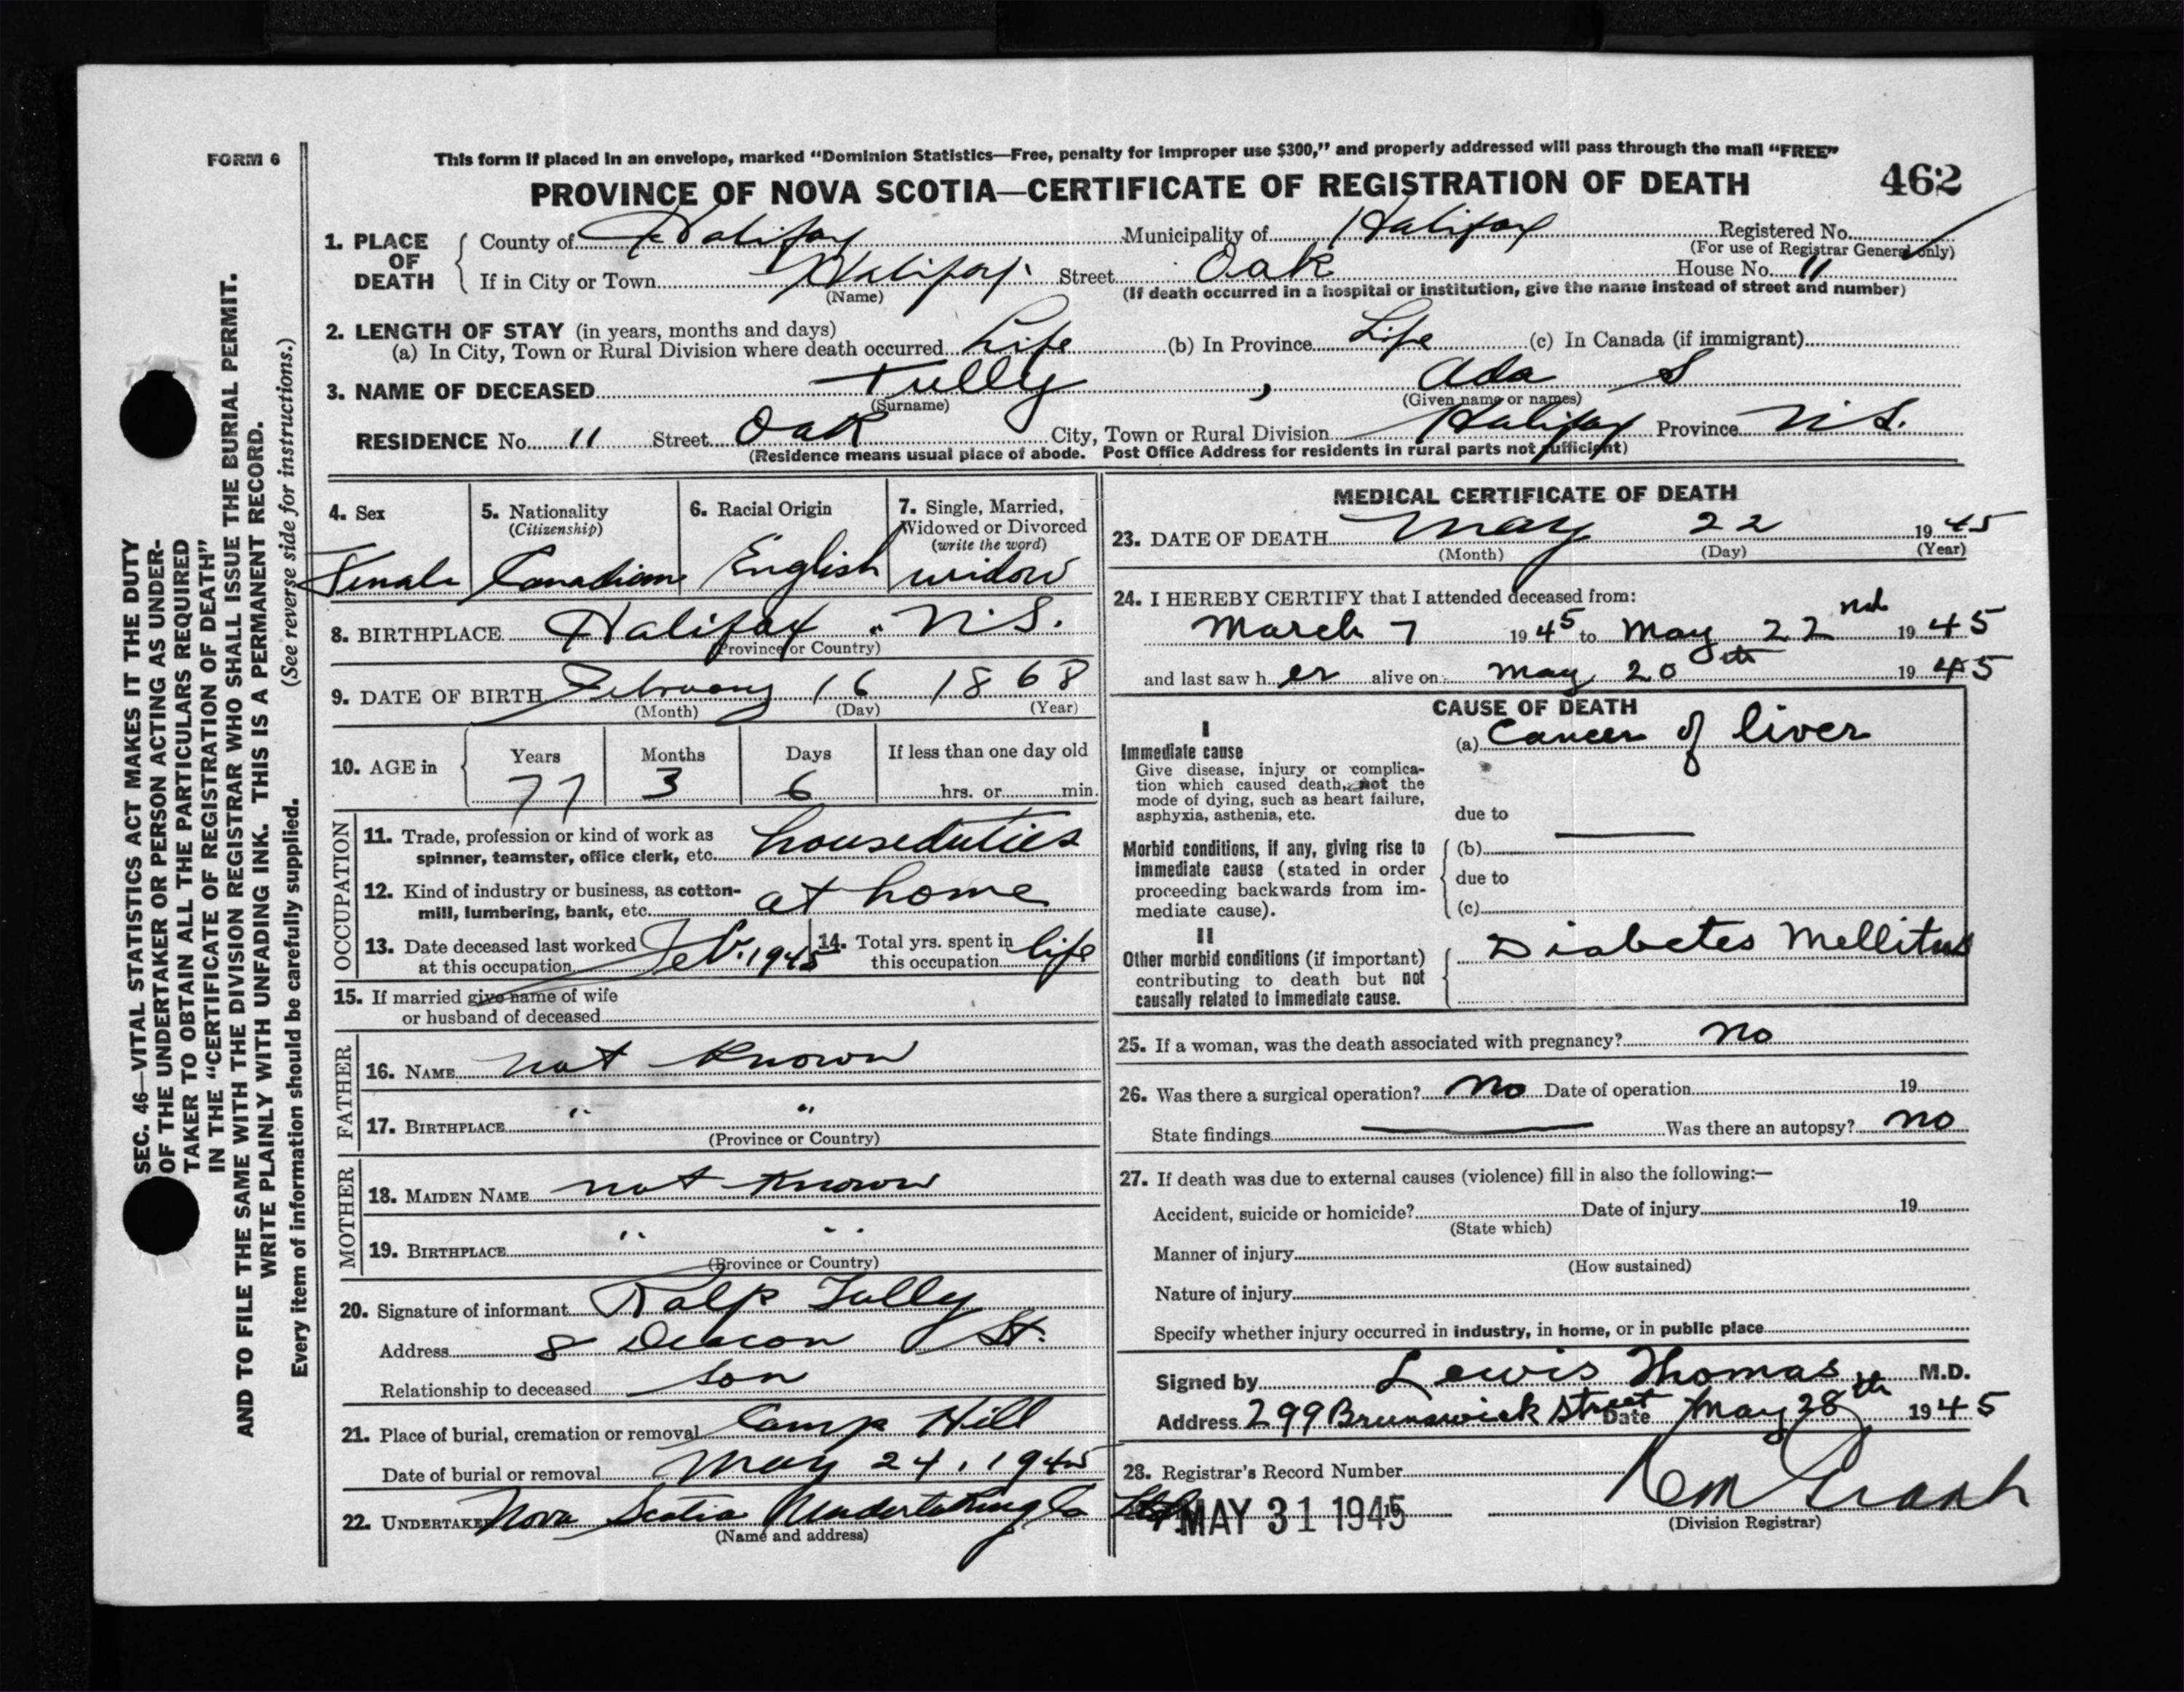 FORM 6
This form if placed in an envelope, marked “Dominion Statistics—Free, penalty for improper use $300,” and properly addressed will pass through the mail “FREE”
PROVINCE OF NOVA SCOTIA—CERTIFICATE OF REGISTRATION OF DEATH
462
1. PLACE OF DEATH
County of Halifax Municipality of Halifax Registered No.
(For use of Registrar General only)
If in City or Town Halifax Street Oak House No. 11
(Name) (If death occurred in a hospital or institution, give the name instead of street and number)
2. LENGTH OF STAY (in years, months and days)
(a) In City, Town or Rural Division where death occurred Life (b) In Province Life (c) In Canada (if immigrant)
3. NAME OF DECEASED Tully , Ada S
(Surname) (Given name or names)
RESIDENCE No. 11 Street Oak City, Town or Rural Division Halifax Province N.S.
(Residence means usual place of abode. Post Office Address for residents in rural parts not sufficient)
4. Sex
Female
5. Nationality
(Citizenship)
Canadian
6. Racial Origin
English
7. Single, Married,
Widowed or Divorced
(write the word)
widow
8. BIRTHPLACE Halifax " N.S.
(Province or Country)
9. DATE OF BIRTH February 16 1868
(Month) (Day) (Year)
10. AGE in
Years Months Days If less than one day old
77 3 6 hrs. or min.
OCCUPATION
11. Trade, profession or kind of work as
spinner, teamster, office clerk, etc. houseduties
12. Kind of industry or business, as cotton-
mill, lumbering, bank, etc. at home
13. Date deceased last worked
at this occupation Feb. 1945
14. Total yrs. spent in
this occupation life
15. If married give name of wife
or husband of deceased
FATHER
16. NAME not known
17. BIRTHPLACE " "
(Province or Country)
MOTHER
18. MAIDEN NAME not known
19. BIRTHPLACE " "
(Province or Country)
20. Signature of informant Ralp Tully
Address 8 Deacon St.
Relationship to deceased son
21. Place of burial, cremation or removal Camp Hill
Date of burial or removal May 24, 1945
22. UNDERTAKER Nova Scotia Undertaking Co
(Name and address)
MEDICAL CERTIFICATE OF DEATH
23. DATE OF DEATH May 22 1945
(Month) (Day) (Year)
24. I HEREBY CERTIFY that I attended deceased from:
March 7 1945 to May 22nd 1945
and last saw her alive on May 20th 1945
CAUSE OF DEATH
I
Immediate cause
Give disease, injury or complica-
tion which caused death, not the
mode of dying, such as heart failure,
asphyxia, asthenia, etc.
(a) Cancer of liver
due to
Morbid conditions, if any, giving rise to
immediate cause (stated in order
proceeding backwards from im-
mediate cause).
(b)
due to
(c)
II
Other morbid conditions (if important)
contributing to death but not
causally related to immediate cause.
Diabetes Mellitus
25. If a woman, was the death associated with pregnancy? no
26. Was there a surgical operation? no Date of operation 19
State findings Was there an autopsy? no
27. If death was due to external causes (violence) fill in also the following:—
Accident, suicide or homicide? Date of injury 19
(State which)
Manner of injury
(How sustained)
Nature of injury
Specify whether injury occurred in industry, in home, or in public place
Signed by Lewis Thomas M.D.
Address 299 Brunswick Street Date May 28th 1945
28. Registrar's Record Number
MAY 31 1945
(Division Registrar)
SEC. 46—VITAL STATISTICS ACT MAKES IT THE DUTY
OF THE UNDERTAKER OR PERSON ACTING AS UNDER-
TAKER TO OBTAIN ALL THE PARTICULARS REQUIRED
IN THE “CERTIFICATE OF REGISTRATION OF DEATH”
AND TO FILE THE SAME WITH THE DIVISION REGISTRAR WHO SHALL ISSUE THE BURIAL PERMIT.
WRITE PLAINLY WITH UNFADING INK. THIS IS A PERMANENT RECORD.
Every item of information should be carefully supplied. (See reverse side for instructions.)